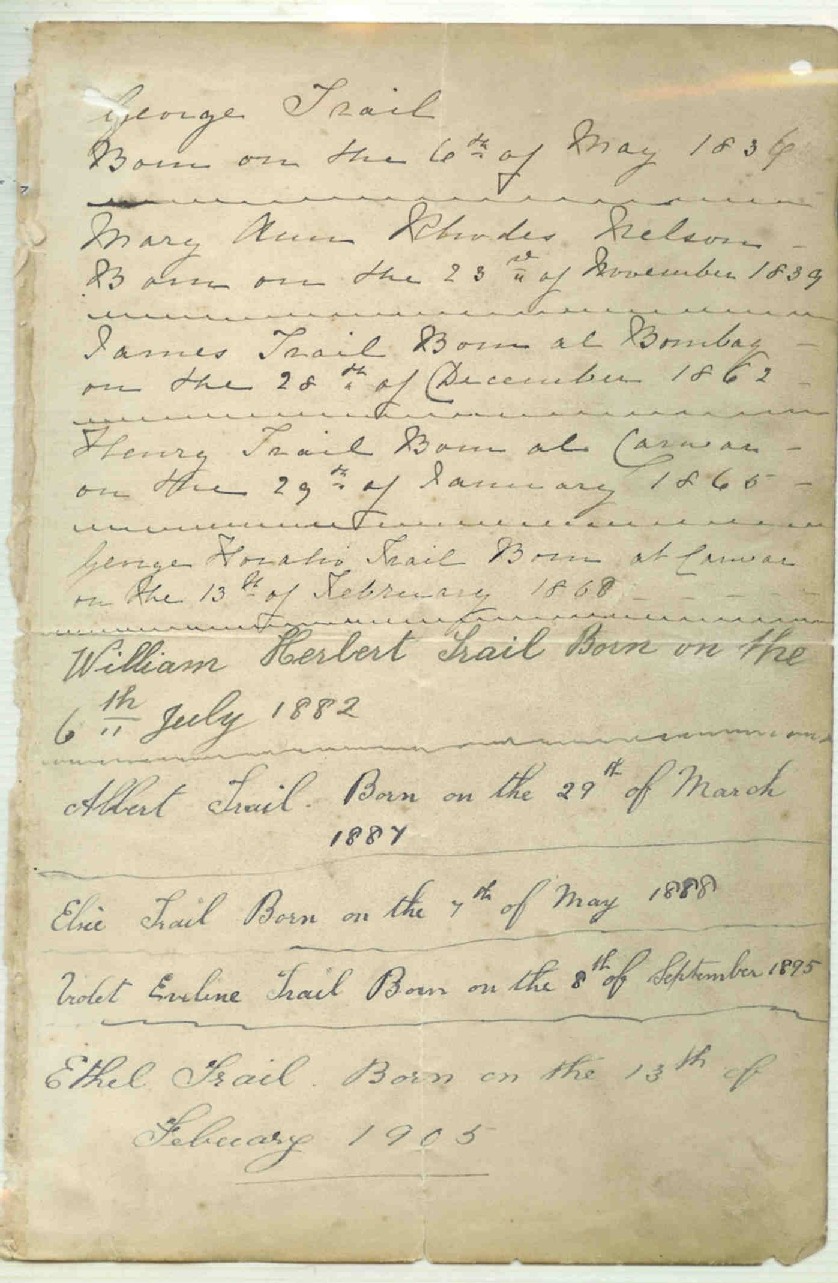 George Trail
Born on the 6th of May 1836
Mary Ann Rhodes Nelson
Born on the 23rd of November 1839
James Trail Born at Bombay
on the 28th of December 1862
Henry Trail Born at Carwar
on the 29th of January 1865
George Horatio Trail Born at Carwar
on the 13th of February 1868
William Herbert Trail Born on the
6th July 1882
Albert Trail. Born on the 29th of March
1887
Elsie Trail Born on the 7th of May 1888
Violet Eveline Trail Born on the 8th of September 1895
Ethel Trail. Born on the 13th of
Febuary 1905